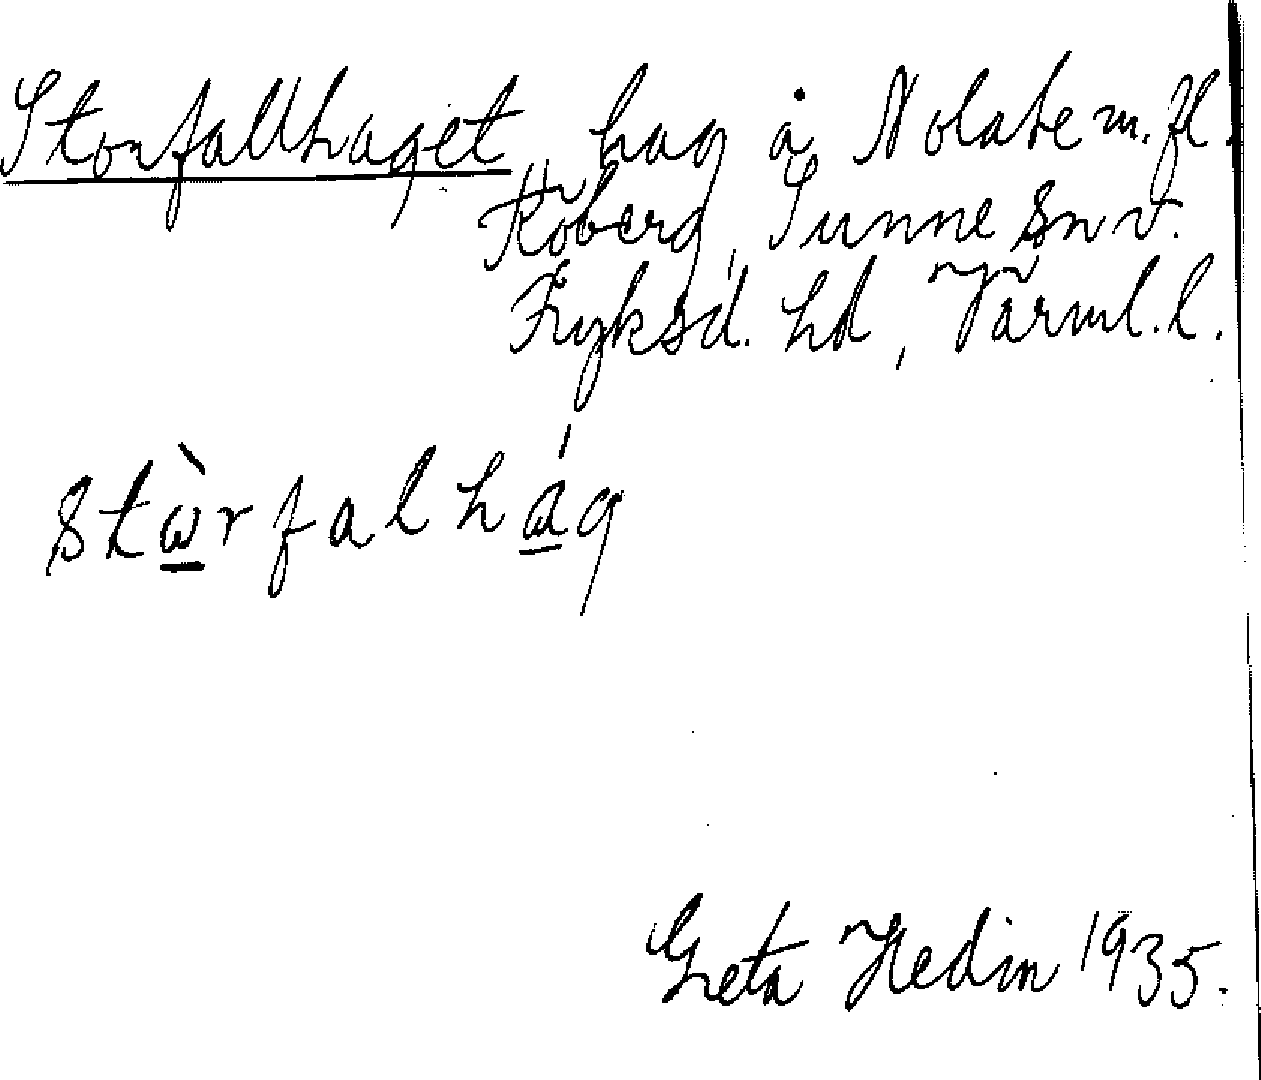 Storfallhaget, hag å Nolabe m. fl.
Röberg, Sunne sn v.
Fryksd. hd, Värml. l.
stὼ̲rfalhá̲g
Greta Hedin 1935.